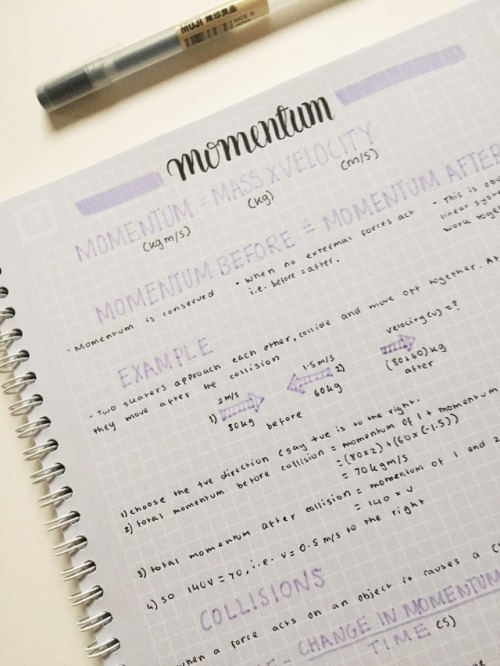 MUJI 無印良品
MADE IN
momentum
MOMENTUM = MASS X VELOCITY
(kgm/s) (kg) (m/s)
MOMENTUM BEFORE = MOMENTUM AFTER
- Momentum is conserved
• when no external forces act
i.e. before = after.
- This is
linear system
work together
EXAMPLE
- Two skaters approach each other, collide and move off together. At
they move after the collision
1) 2m/s 80kg
before
1.5m/s 2) 60kg
velocity (v) = ?
(80+60) kg
after
1) choose the +ve direction (say +ve is to the right.
2) total momentum before collision = momentum of 1 + momentum
= (80x2) + (60x(-1.5))
= 70kgm/s
3) total momentum after collision = momentum of 1 and 2
= 140 x v
4) so 140v = 70, i.e. v = 0.5 m/s to the right
COLLISIONS
when a force acts on an object it causes a
CHANGE IN MOMENTUM
TIME (s)